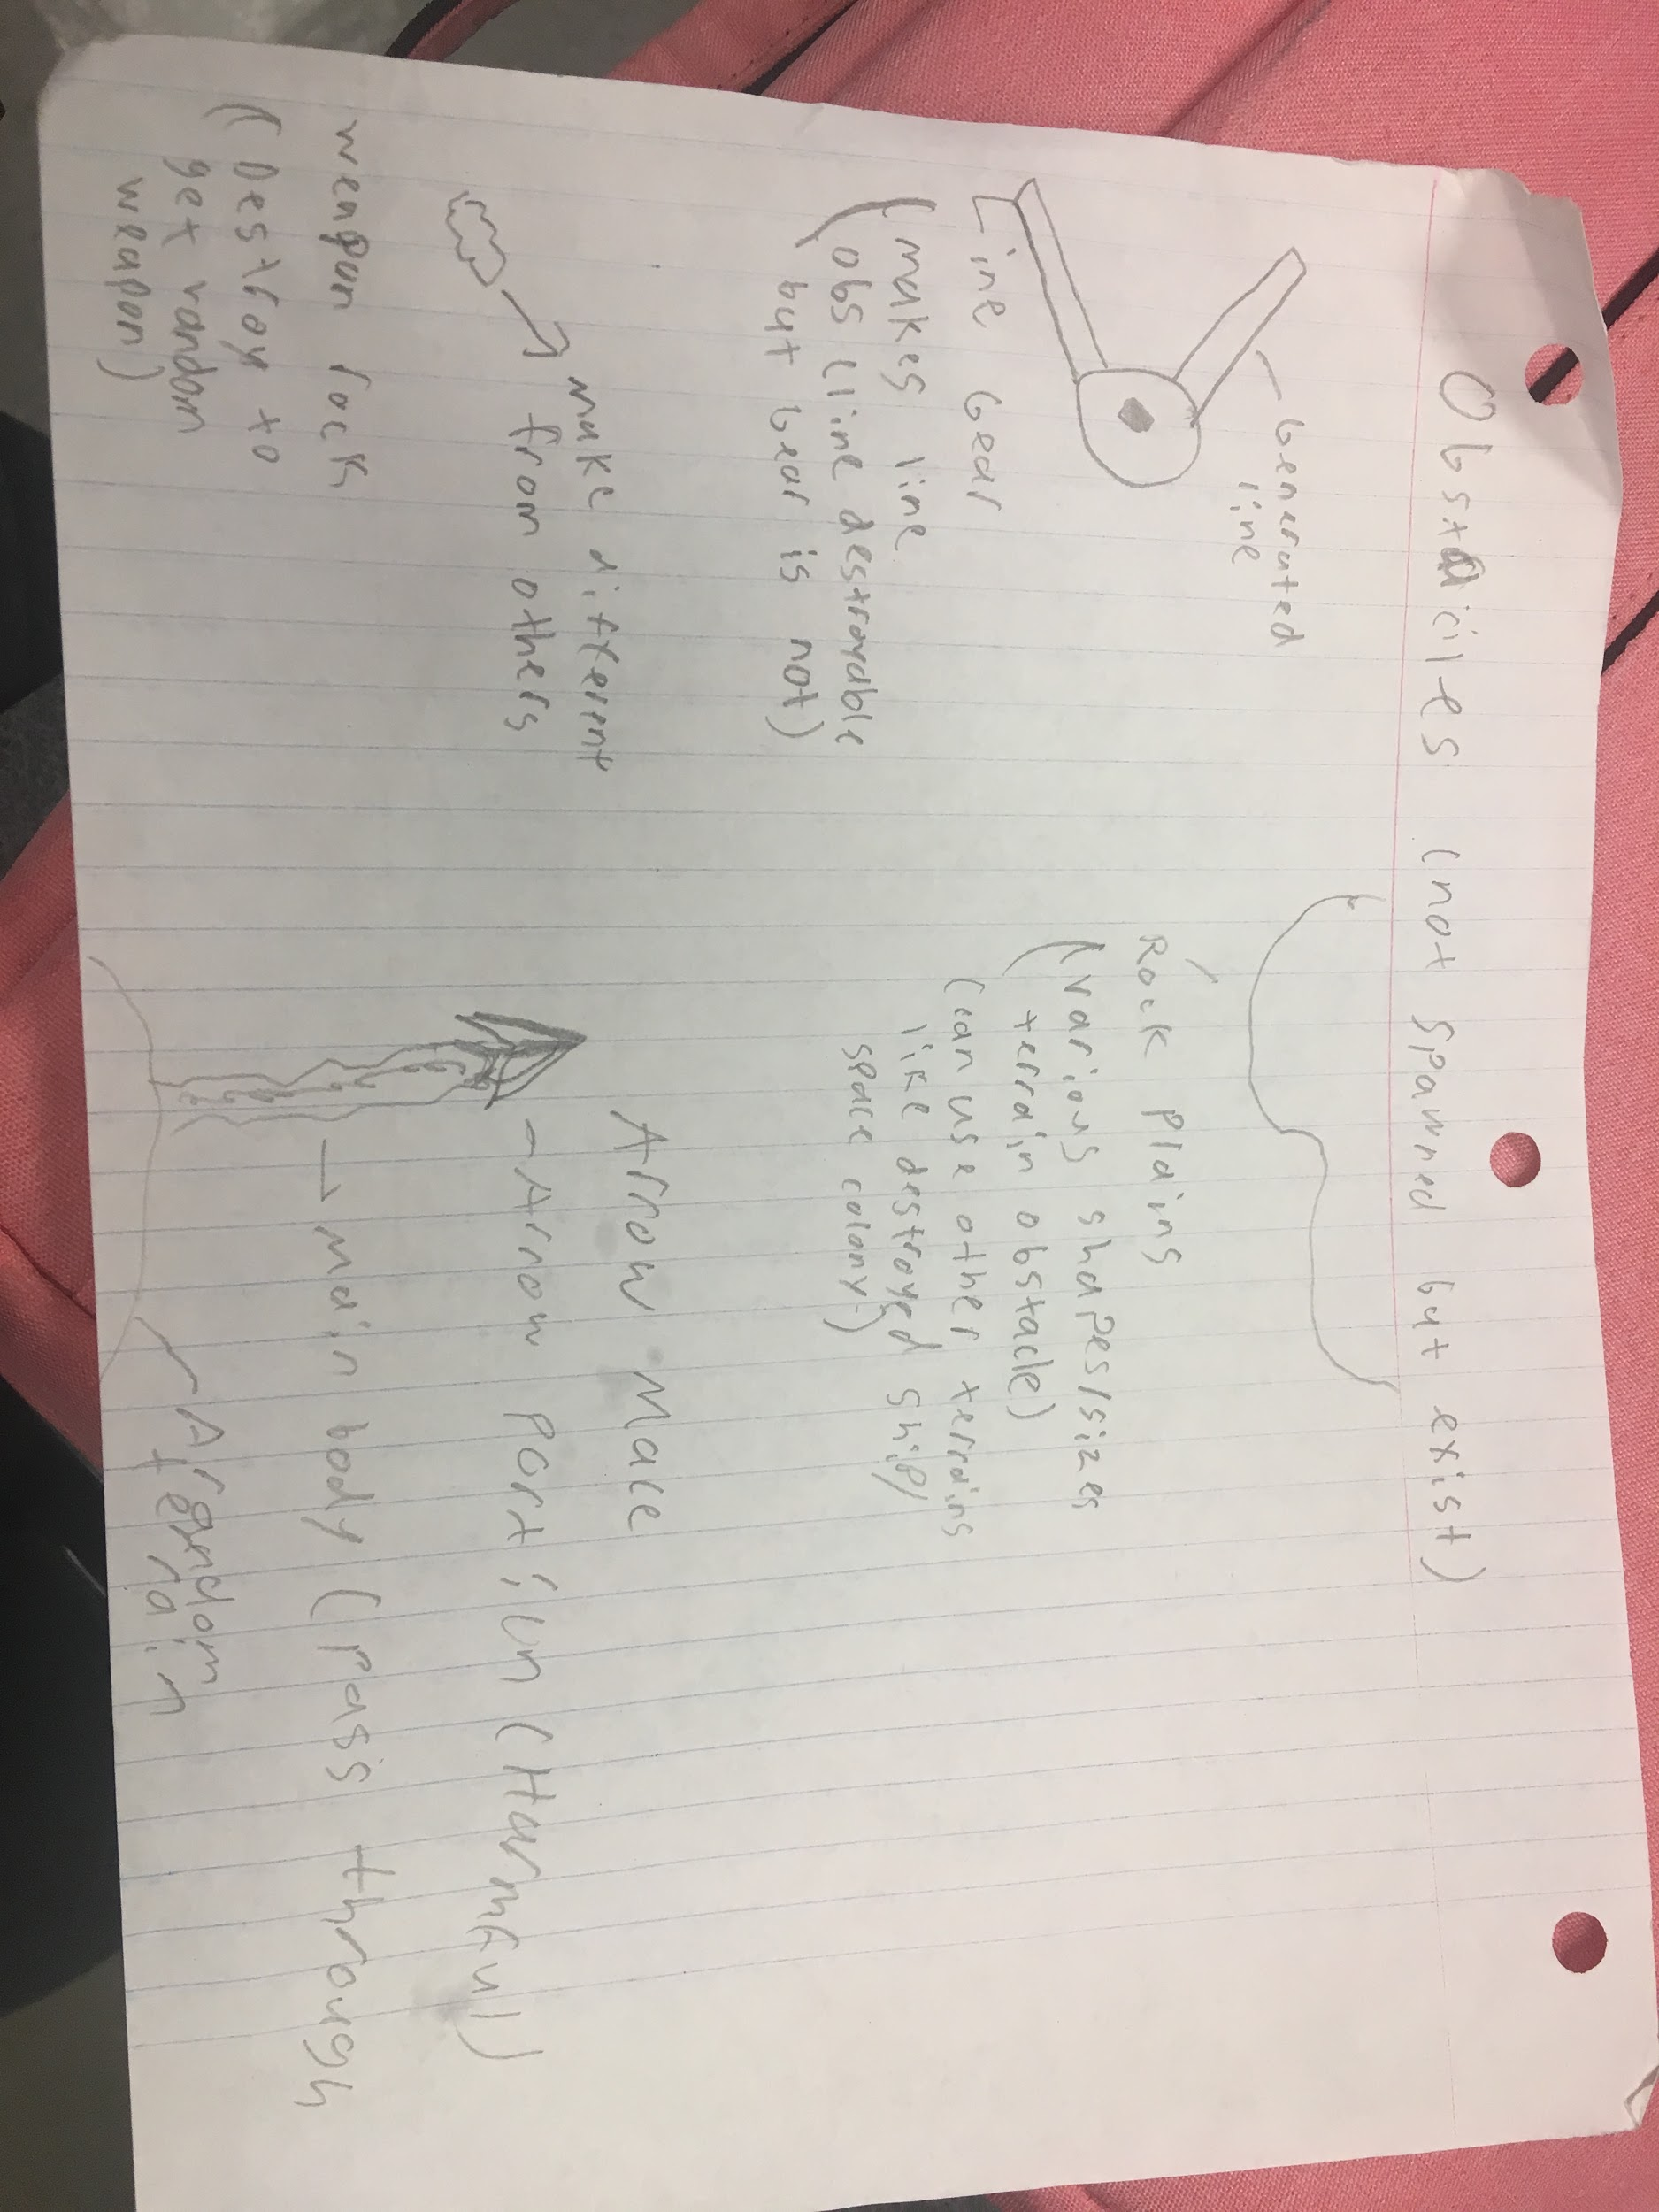 Obstaiciles (not spawned but exist)
Generated
line
Line Gear
(makes line
obs (line destroyable
but gear is not)
make different
from others
weapon rock
(Destroy to
get random
weapon)
Rock Plains
(various shapes/sizes
terrain obstacle)
(can use other terrains
like destroyed ship/
space colony)
Arrow Mace
Arrow Portiun (Harmful)
main body (pass through
A random
terrain